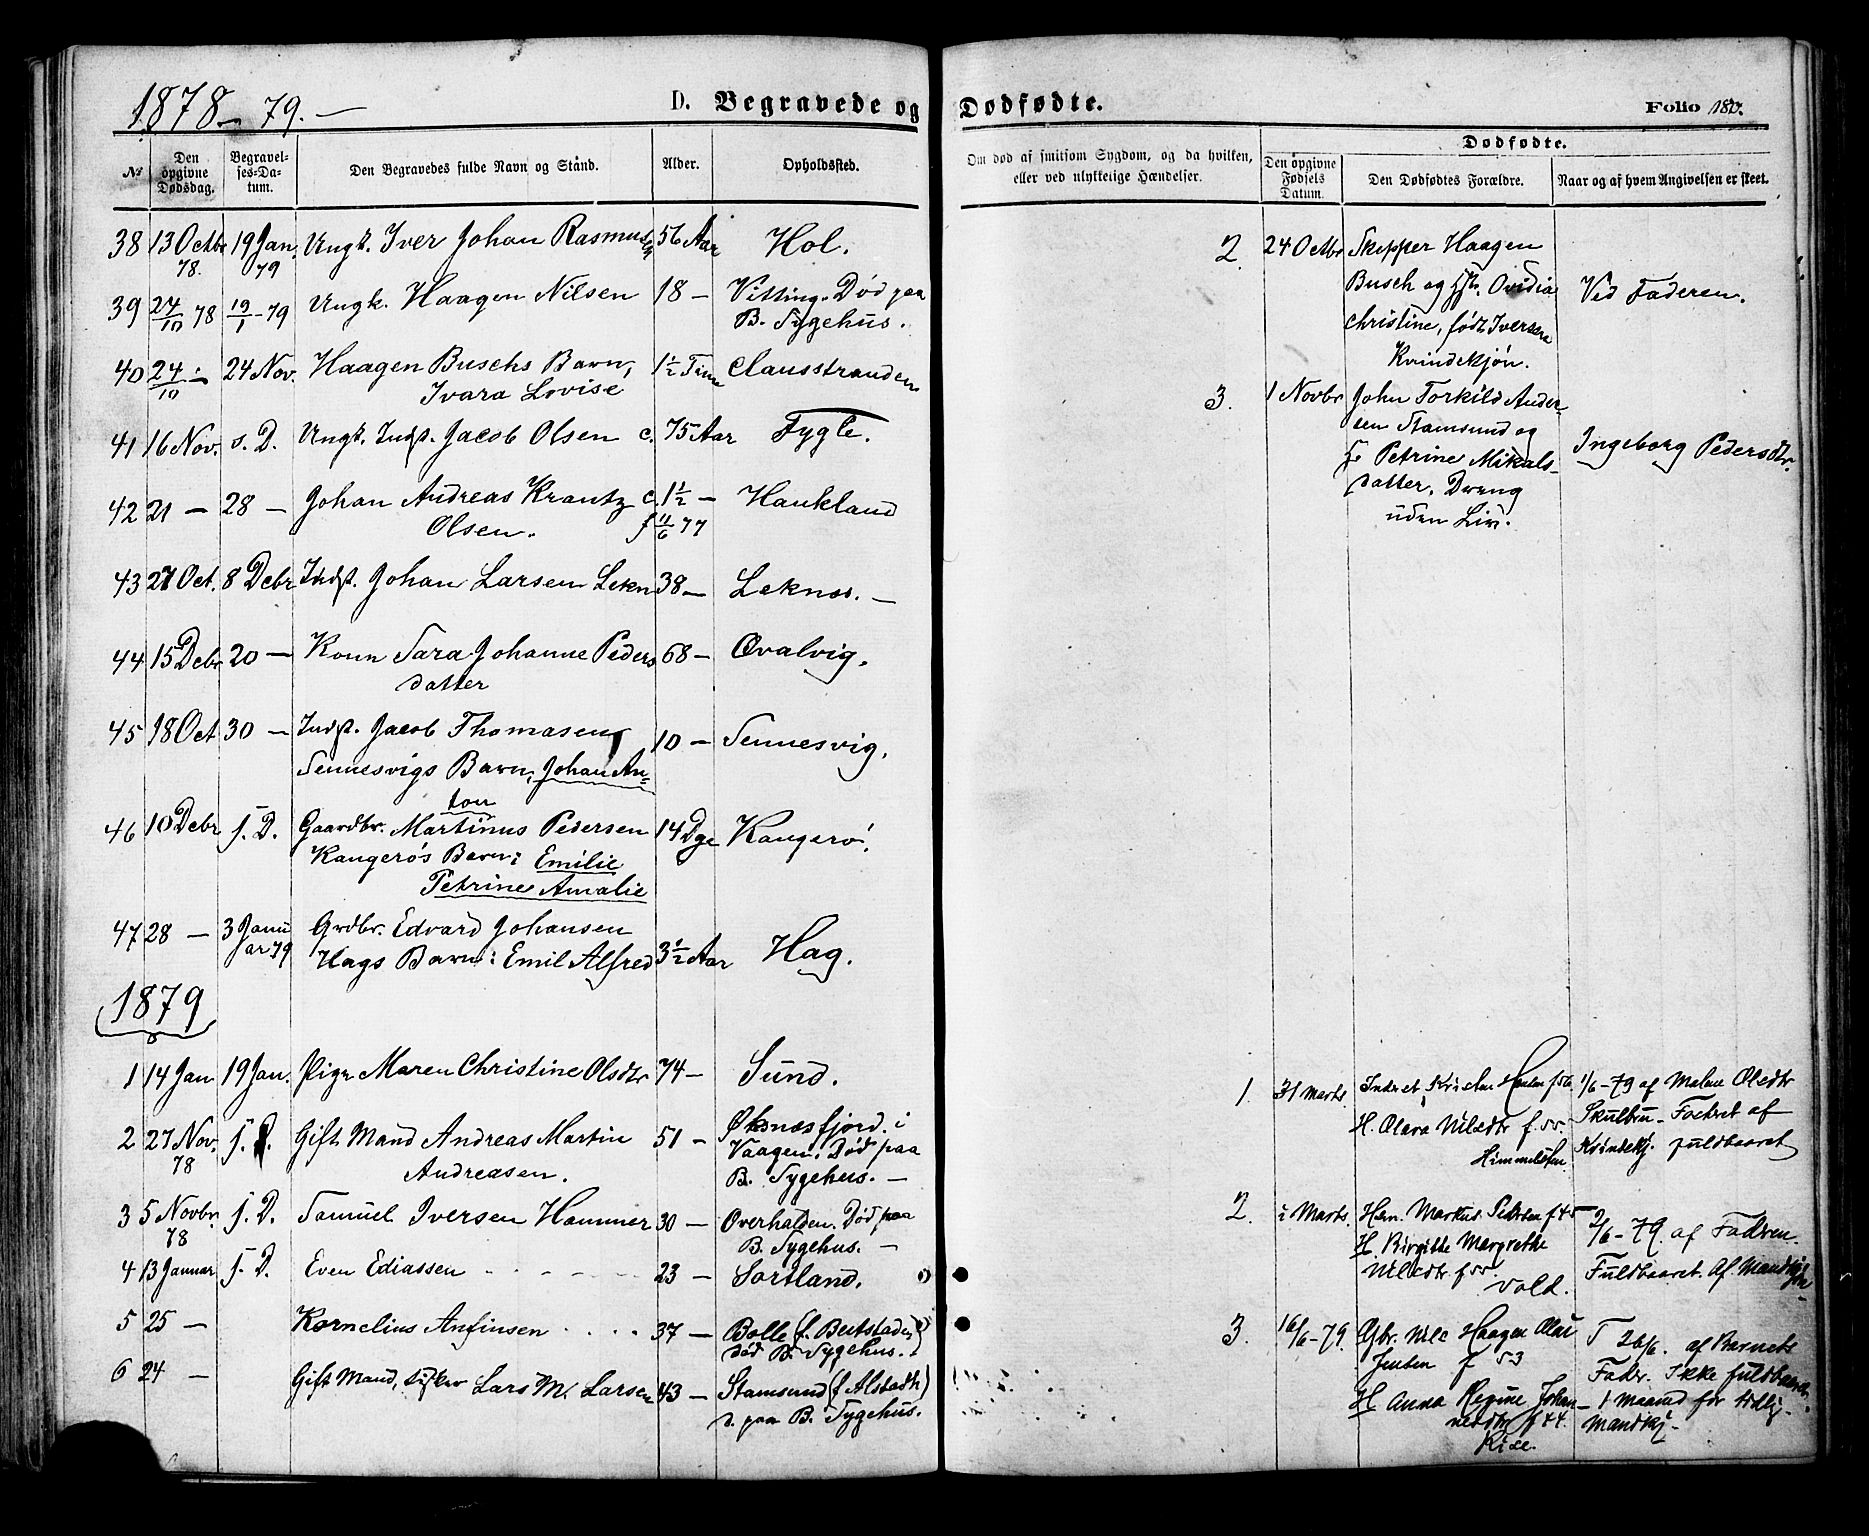 1878-79.-
D. Begravede og Dødfødte.
Folio 180.
№
Den opgivne Dødsdag.
Begravelses-Datum.
Den Begravedes fulde Navn og Stånd.
Alder.
Opholdssted.
Om død af smitsom Sygdom, og da hvilken, eller ved ulykkelige Hændelser.
Dødfødte.
Den opgivne Fødsels Datum.
Den Dødfødtes Forældre.
Naar og af hvem Angivelsen er skeet.
38 13 Octbr 78. 19 Jan. 79 Ungk. Iver Johan Rasmusen 56 Aar Hol.
39 24/10 78 19/1-79 Ungk. Haagen Nilsen 18 - Vitting. Død paa
B. Sygehus.
40 24/10 - 24 Nov. Haagen Buschs Barn, 1½ Time Clausstranden
Ivara Lovise
41 16 Nov. s. D. Ungk. Indst. Jacob Olsen c. 75 Aar Fygle.
42 21 - 28 - Johan Andreas Krantz c. 1½ - Haukland
Olsen. f 11/6 77
43 27 Oct. 8 Debr Indst. Johan Larsen Lekn 38 - Leknes. -
44 15 Debr 20 - Kone Sara Johanne Peders 68 - Qvalvig.
datter
45 18 Oct 30 - Indst. Jacob Thomasen 10 - Sennesvig.
Sennesvigs Barn, Johan An-
ton
46 10 Debr s. D. Gaardbr. Martinus Pedersen 14 Dge Kangerø.
Kangerøs Barn: Emilie
Petrine Amalie
47 28 - 3 Janu Grdbr. Edvard Johansen
ar 79 Hags Barn: Emil Alfred 3½ Aar Hag.
1879
1 14 Jan 19 Jan. Pige Maren Christine Olsdtr 74 - Sund.
2 27 Nov. 78 s. D. Gift Mand Andreas Martin 51 - Øksnæsfjord i
Andreasen. Vaagen. Død paa
B. Sygehus. -
3 5 Novbr. 78 s. D. Samuel Iversen Hammer 30 - Overhalden. Død paa
B. Sygehus. -
4 13 Januar s. D. Even Ediassen 23 - Sortland.
5 25 - Kornelius Anfinsen 37 - Bolle (f. Beitstaden)
død B. Sygehus.
6 24 - Gift Mand, Lars M. Larsen 43 - Stamsund (f Alstadh)
d. paa B. Sygehus.
2. 24 Octbr Skipper Haagen
Busch og Hst. Ovidia
Christine, født Iversen
Kvindekjøn.
Ved Faderen.
3. 1 Novbr John Torkild Ander-
sen Stamsund og
Petrine Mikals-
datter. Dreng
uden Liv.
Ingeborg Pedersdtr.
1. 31 Marts Kristen f 56
H. Olava Nilsdtr f. 55.
Himmelsten
1/6-79 af Malene Olsdtr
Skulbru - Født af
Kvindekj. fuldbaaret
2. 1 Marts. Markus Petersen f 45
H. Birgitte Margrethe
Nilsdtr f 55.
Vold.
2/6-79. af Fadren.
Fuldbaaret. Af Mandkjøn
3. 16/6-79. Gbr. Nils Haagen Olai
Jensen f 53
H. Anna Regine Johan-
nesdtr f 44.
Rise.
T 26/6. af Barnets
Fader. Ikke fuldbaaren
1 Maaned for tidlig.
Mandkj.